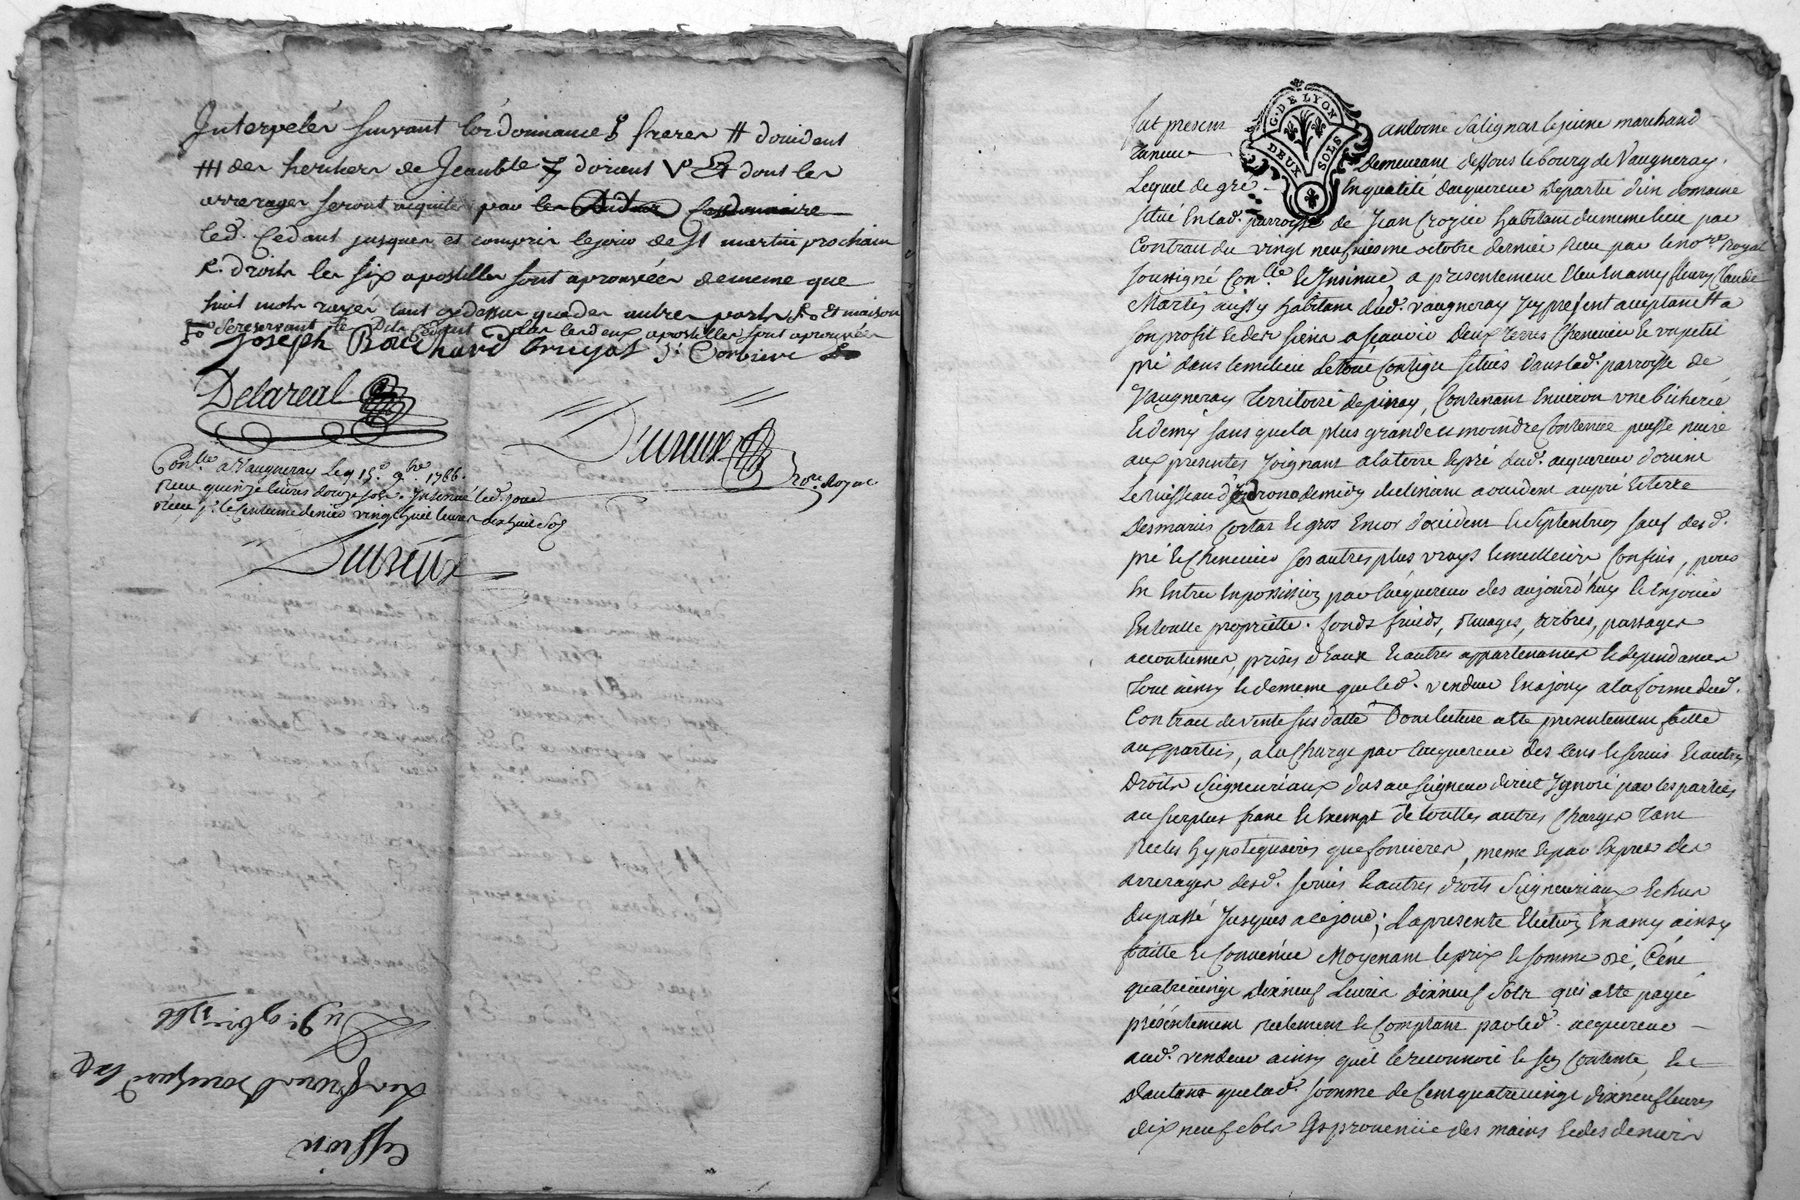 Interpelés suivant l'ordonnance § freres # d'orient
### des heritiers de Jean Ble dorient Vo Et dont les
arrerages seront acquités par les
led. Cedant jusques et compris le jour de St martin prochain
& droits les six apostilles sont aprouvées de meme que
huit mots rayés tant cydessus que des autres parts & maison
se reservant led. Cedant les deux apostilles sont aprouvées
Joseph Bouchard Brujas J. Corbiere
Delareal
Dureux
No.re Royal
Con.lle a Vaugneray le 15.e 9.bre 1766.
Reçu quinze livres douze sols. Insinué led. jour
Reçu p.r le Centieme denier vingt huit livres dix huit sols
Dureux
Du 9.bre 1766
Cession
G. DE LYON
DEUX SOLS
fut present antoine Salignat le jeune marchand
Taneur demeurant dessous le bourg de Vaugneray.
Lequel de gré En qualité dacquereur de partie d'un domaine
situé En lad. parroisse de Jean Crozier habitant du meme lieu par
Contrat du vingt neufvieme octobre dernier recu par le no.re Royal
soussigné Con.lle & Insinué, a presentement Eleu En amy fleury Claude
Martin aussy habitant dud. Vaugneray Icy present acceptant # a
son profit & des siens a scavoir deux terres Cheneviere & un petit
pré dans le milieu Le tout Contigu situés dans lad. parroisse de
Vaugneray territoire de pinay, Contenant Environ une bicherée
& demy sans que la plus grande ou moindre Contenue puisse nuire
aux presentes Joignant a la terre & pré dud. acquereur d'orient
Le ruisseau d'yzeron de midy declinant a occident au pré & terre
des maries Cortas & gros Encor d'occident & Septentrion sauf desd.
pré & Cheneviere ses autres plus vrays & meilleurs Confins, pour
En Entrer En possession par lacquereur des aujourd'huy & En jouir
En toutte proprietté. fonds fruids, Ruages, arbres, passages
accoutumés, prises d'Eaux & autres appartenances & dependances
Tout ainsy & de meme que led. vendeur En a jouy a la forme dud.
Contrat de vente sus datté Dont lecture a eté presentement faitte
aux parties, a la Charge par lacquereur des Cens & servis & autres
Droits Seigneuriaux dus au Seigneur direct Ignoré par les parties
au surplus franc & Exempt de touttes autres Charges tant
Reeles hypotéquaires que foncieres, meme & par Exprés des
arrerages desd. servis & autres droits Seigneuriaux Echus
du passé Jusques a ce jour; La presente Election En amy ainsy
faitte & Convenue Moyenant le prix & somme de, Cent
quatrevingt dixneuf Livres dixneuf sols qui a eté payée
présentement reelement & Comptant par led. acquereur
aud. vendeur ainsy quil le reconnoit & sen Contente, &
d'autant que lad. somme de Cent quatrevingt dixneuf livres
dix neuf sols Est provenue des mains & des deniers